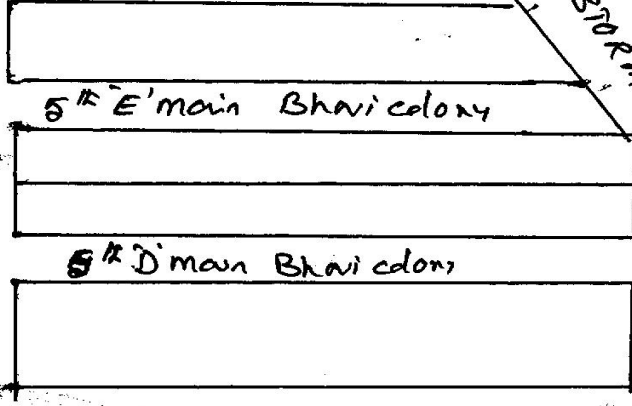 STORM
5th 'E' main Bhovi colony
5th 'D' main Bhovi colony